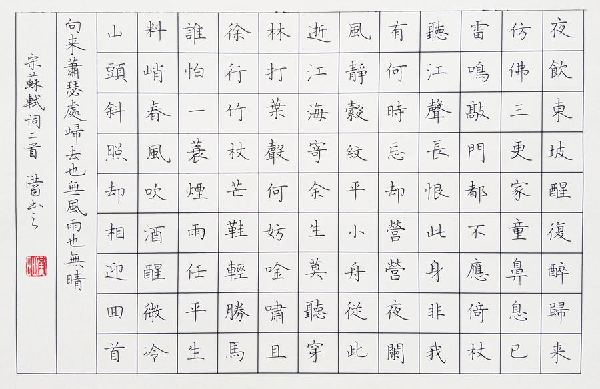 夜飲東坡醒復醉歸来
仿佛三更家童鼻息已
雷鳴敲門都不應倚杖
聽江聲長恨此身非我
有何時忘却營營夜闌
風靜縠紋平小舟從此
逝江海寄余生莫聽穿
林打葉聲何妨吟嘯且
徐行竹杖芒鞋輕勝馬
誰怕一蓑煙雨任平生
料峭春風吹酒醒微冷
山頭斜照却相迎回首
向来蕭瑟處歸去也無風雨也無晴
宋蘇軾詞二首